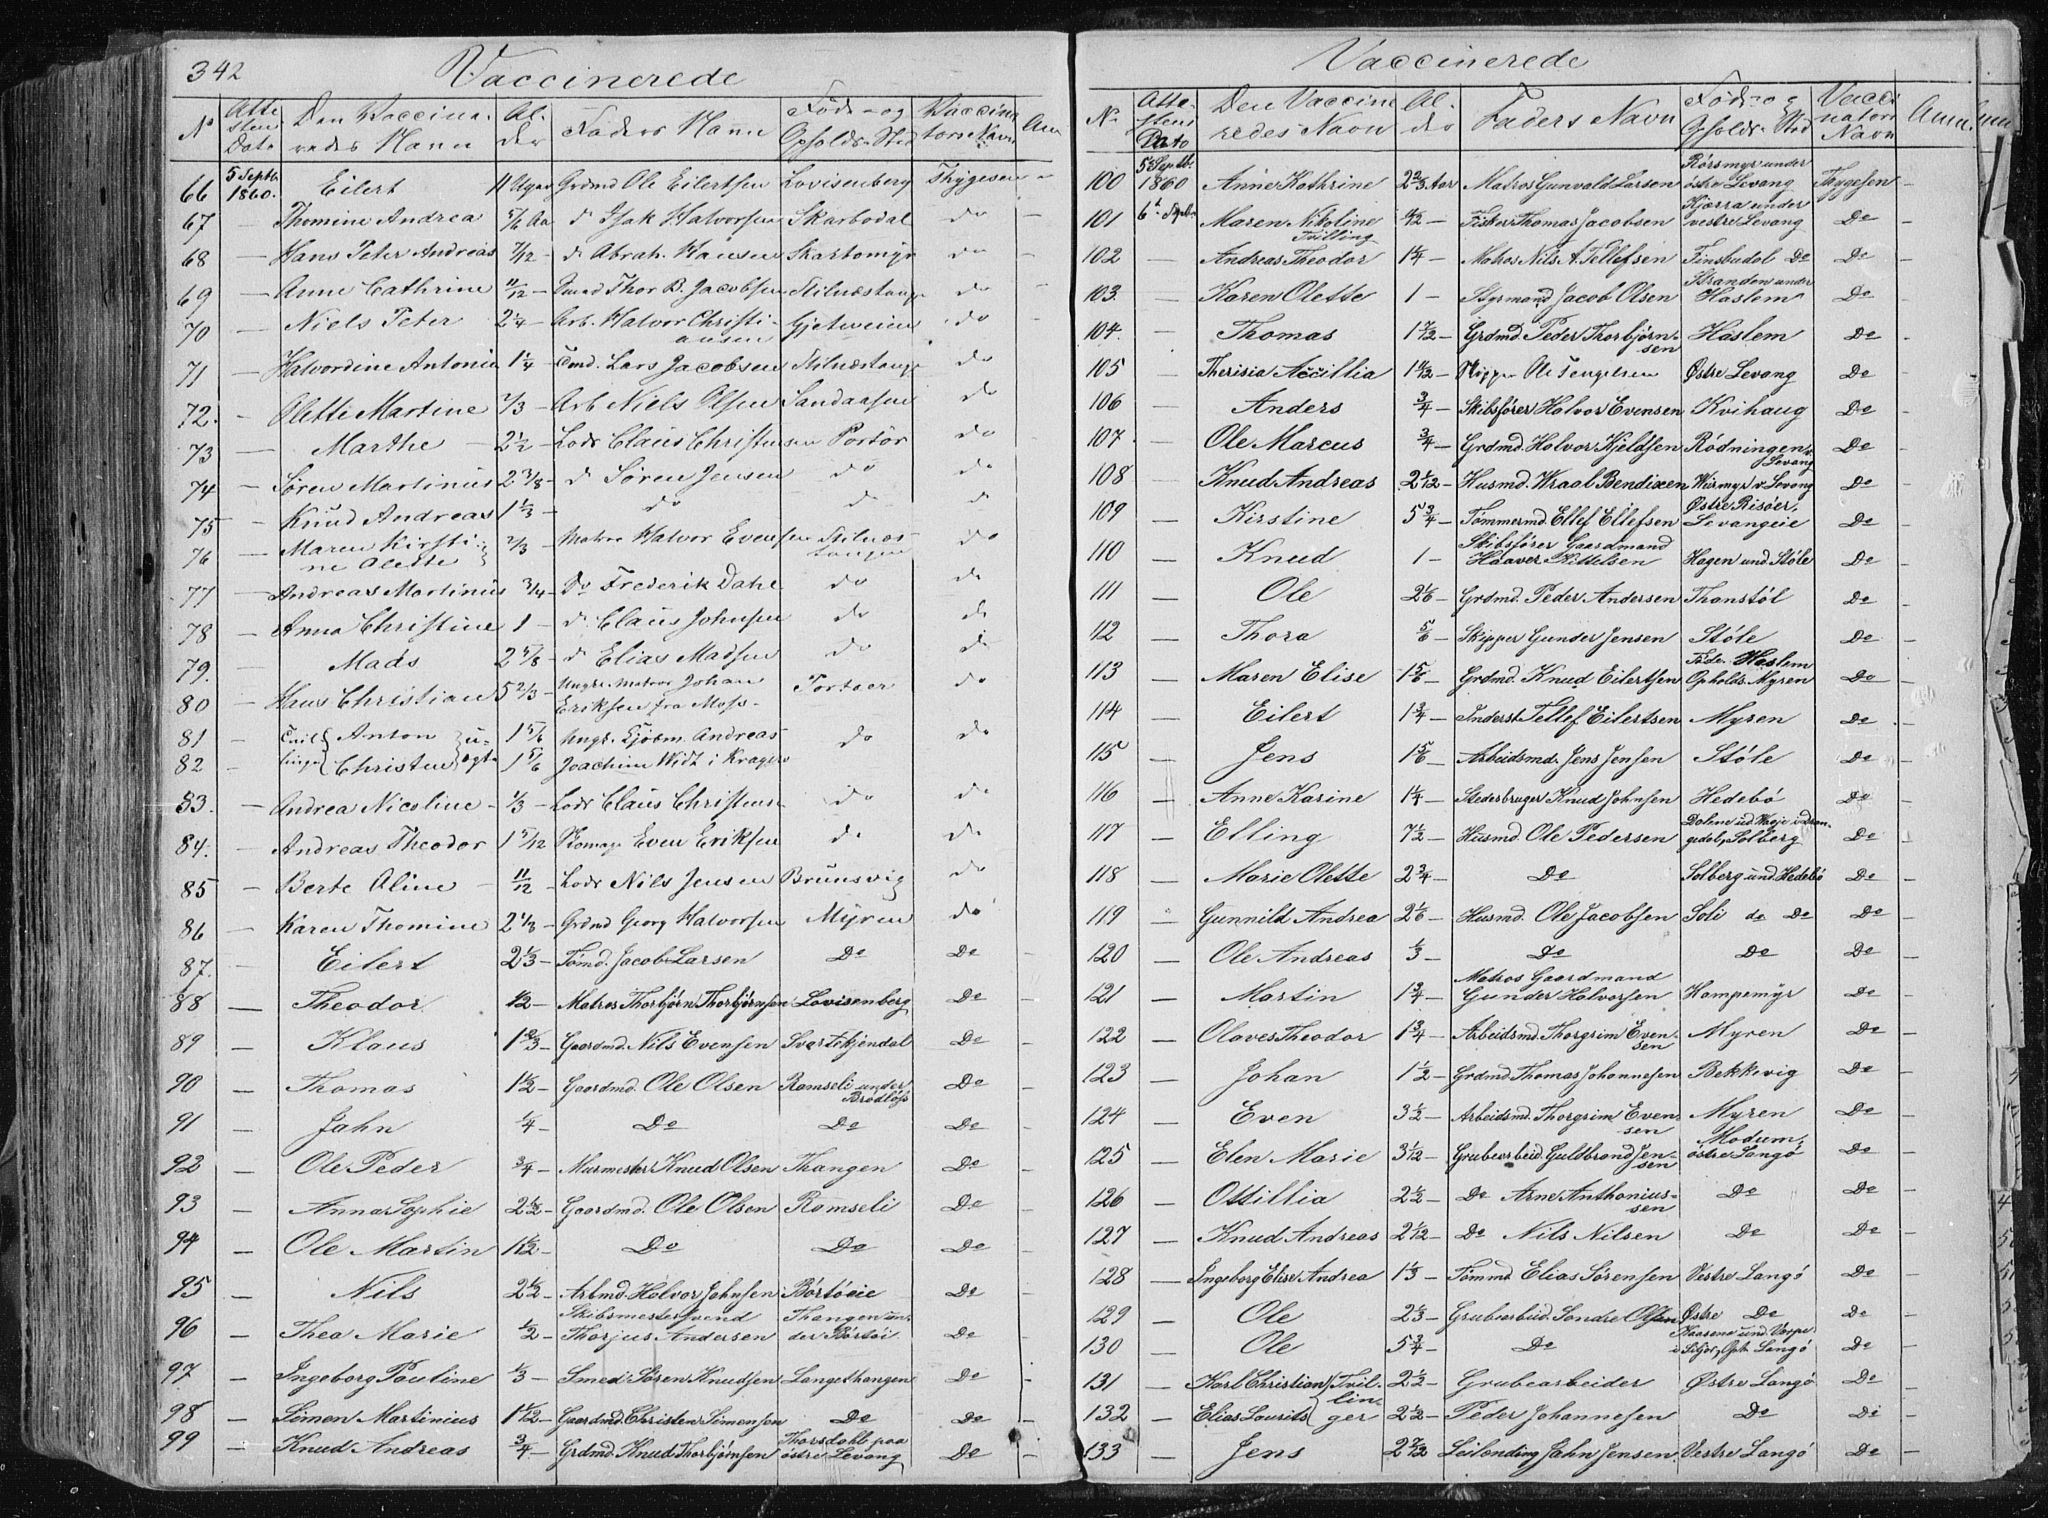 342
Vaccinerede
No Atte stens Dato Den Vaccine redes Navn Al der Faders Navn Føde- og Opholds-Sted Vaccina torens Navn Anm
66 5 Septb. 1860. Eilert 11 Grdmd Ole Eilertsen Lovisenberg Thygesen -
67 - Thomine Andrea 5/6 Aa d Isak Halvorsen Skarbodal do -
68 - Hans Peter Andreas 7/12 - d Abrah. Hansen Skartomyr do
69 - Anne Cathrine 11/12 - Thor B. Jacobsen Stilnæstang do
70 - Niels Peter 2 1/4 - Arb. Halvor Christi- Gjetveien do
ansen
71 - Halvordine Antonia 1 1/4 - Tmd. Lars Jacobsen Stilnæstang do
72. - Olette Martine 2/3 - Arb Niels Olsen Sandaasen do
73 - Marthe - 2 1/2 - Lods Claus Christensen Portør do
74 - Søren Martinus 2 3/8 - d Søren Jensen do do
75 - Knud Andreas 1 1/3 - do d do
76 - Maren Kirsti- 2/3 - Matros Halvor Evensen Stilnæs- do
ne Olette tangen
77 - Andreas Martinius 3/4 - Do Frederik Dahl do do
78 - Anna Christine 1 - d Claus Johnsen do do
79. - Mads 2 5/8 - d Elias Madsen do do
80 - Hans Christian 5 2/3 - Ungk. Matros Johan Portøer do
Eriksen fra Moss -
81 - Tvil Anton u- 1 5/6 Ungk. Sjøm. Andreas do do
82 - linger Christen ægte 1 5/6 Joachim Widt i Kragerø
83. - Andrea Nicoline - 1/3 - Lods Claus Christens- do do
84. - Andreas Theodor 1 5/12 Even Eriksen do do
85 - Berte Aline - 11/12 - Lods Nils Jensen Brunsvig do
86 - Karen Thomine 2 1/3 - Grdmd Georg Halvorsen Myren do
87. - Eilert 2 1/3 - Tømd. Jacob Larsen Do Do
88 - Theodor 1/2 - Matros Thorbjørn Thorbjørnsen Lovisenberg Do -
89 - Klaus 1 2/3 - Gaardmd. Nils Evensen Svartskjendal Do -
90 - Thomas 1 1/2 - Gaardmd. Ole Olsen Romseli under Do -
Brødløs
91 - Jahn 1/4 - Do Do Do -
92 - Ole Peder 3/4 - Murmester Knud Olsen Thangen Do -
93 - Anna Sophie 2 1/2 - Gaardmd. Ole Olsen Romseli Do -
94 - Ole Martin 1 1/2 - Do Do Do -
95 - Nils 2 1/2 - Arbmd. Halvor Johnsen Børtøeie Do -
96 - Thea Marie 1/2 - Skibsmester Svend Thangen un-
Thorjus Andersen der Børtøi Do -
97 - Ingeborg Pauline 1/3 - Smed Søren Knudsen Langethangen Do -
98 - Simen Martinius 1 1/12 - Gaardmd. Christen Simensen Do Do -
99 - Knud Andreas 3/4 - Grdmd. Knud Thorbjørnsen Thorsdahl paa
østre Levang Do -
Vaccinerede
No Atte- stens Dato Den Vaccine redes Navn Al- der Faders Navn Føde- og Opholds-Sted Vacci natorens Navn Anm.
100 5 Septb. 1860 Anne Kathrine 2 2/3 Aar Matros Gunvald Larsen Rørsmyr under
østre Levang Thygesen -
101 6 Septb. Maren Nikoline - Fisker Thomas Jacobsen Kjærra under
Tvilling vestre Levang Do -
102 - Andreas Theodor 1 1/4 - Matros Nils A. Tellefsen Finsbudal Do Do -
103. - Karen Olette 1 - Styrmand Jacob Olsen Stranden under
Haslem Do -
104. - Thomas 1 7/12 - Grdmd. Peder Thorbjørn- Haslem Do -
sen
105 - Therisia Accillia - Skipper Ole Tengelsen Østre Levang Do -
106 - Anders 3/4 - Skibsfører Halvor Evensen Kvihaug Do -
107 - Ole Marcus 3/4 - Grdmd. Halvor Kjeldsen Rødningen v. Do -
Levang
108 - Knud Andreas 2 1/12 - Husmd. Wraal Bendixen v. Levang Do -
109 - Kirstine 5 3/4 - Tømmermd. Ellef Ellefsen Østre Risøer,
Levangeie Do -
110 - Knud 1 - Skibsfører Gaardmand
Haaver Kittelsen Hagen und Støle Do -
111 - Ole 2 1/6 - Grdmd. Peder Andersen Thonstøl Do -
12 - Thora 5/6 - Skipper Gunder Jensen Støle Do -
113 - Maren Elise 1 5/6 - Grdmd. Knud Eilertsen Føde: Haslem
Opholds. Myren Do -
114 - Eilert 1 3/4 - Inderst Tellef Eilertsen Myren Do -
115 - Jens 1 5/6 - Arbeidsmd. Jens Jensen Støle Do -
116 - Anne Karine 1 1/4 - Stedesbruger Knud Johnsen Hedebø Do -
117 - Elling 7 1/2 - Husmd. Ole Pedersen Dolem ud. Vægje i Dran-
gedal, Solberg Do -
118 - Marie Olette 2 3/4 - Do Solberg und Hedebø Do -
119 " Gunnild Andrea 2 1/6 - Husmd. Ole Jacobsen Soli do Do Do -
120 - Ole Andreas 1/3 - Do Do Do -
121 - Martin 1 3/4 - Matros Gaardmand
Gunder Halvorsen Hampemyr Do -
122 - Olaves Theodor 1 3/4 - Arbeidsmd. Thorgrim Even- Myren Do -
sen
123 - Johan 1 1/2 - Grdmd Thomas Johannesen Bekkevig Do -
124 - Even 3 1/2 - Arbeidsmd. Thorgrim Even- Myren Do -
sen
125 - Elen Marie 3 1/12 - Grubearbeid. Guldbrand Jen- Modum,
sen østre Langø Do -
126 - Ottillia 2 1/2 - Do Arne Anthonius- Do Do -
sen
127 - Knud Andreas 2 1/12 - Do Nils Nilsen Do Do -
128 - Ingeborg Elise Andrea 1 1/3 - Tømmd. Elias Sørensen Vestre Langø Do -
129 - Ole 2 1/3 - Grubearbeid. Sondre Olsen Østre Do Do -
130 - Ole 5 3/4 - Do und. Vorpe
Oph. Langø Do -
131 - Karl Christian Tvil- 2 1/2 - Grubearbeider Østre Langø Do -
lin-
132 - Elias Laurits ger 2 1/2 - Peder Johannesen Do Do -
133 - Jens 2 7/12 - Leilending Jahn Jensen Vestre Langø Do -